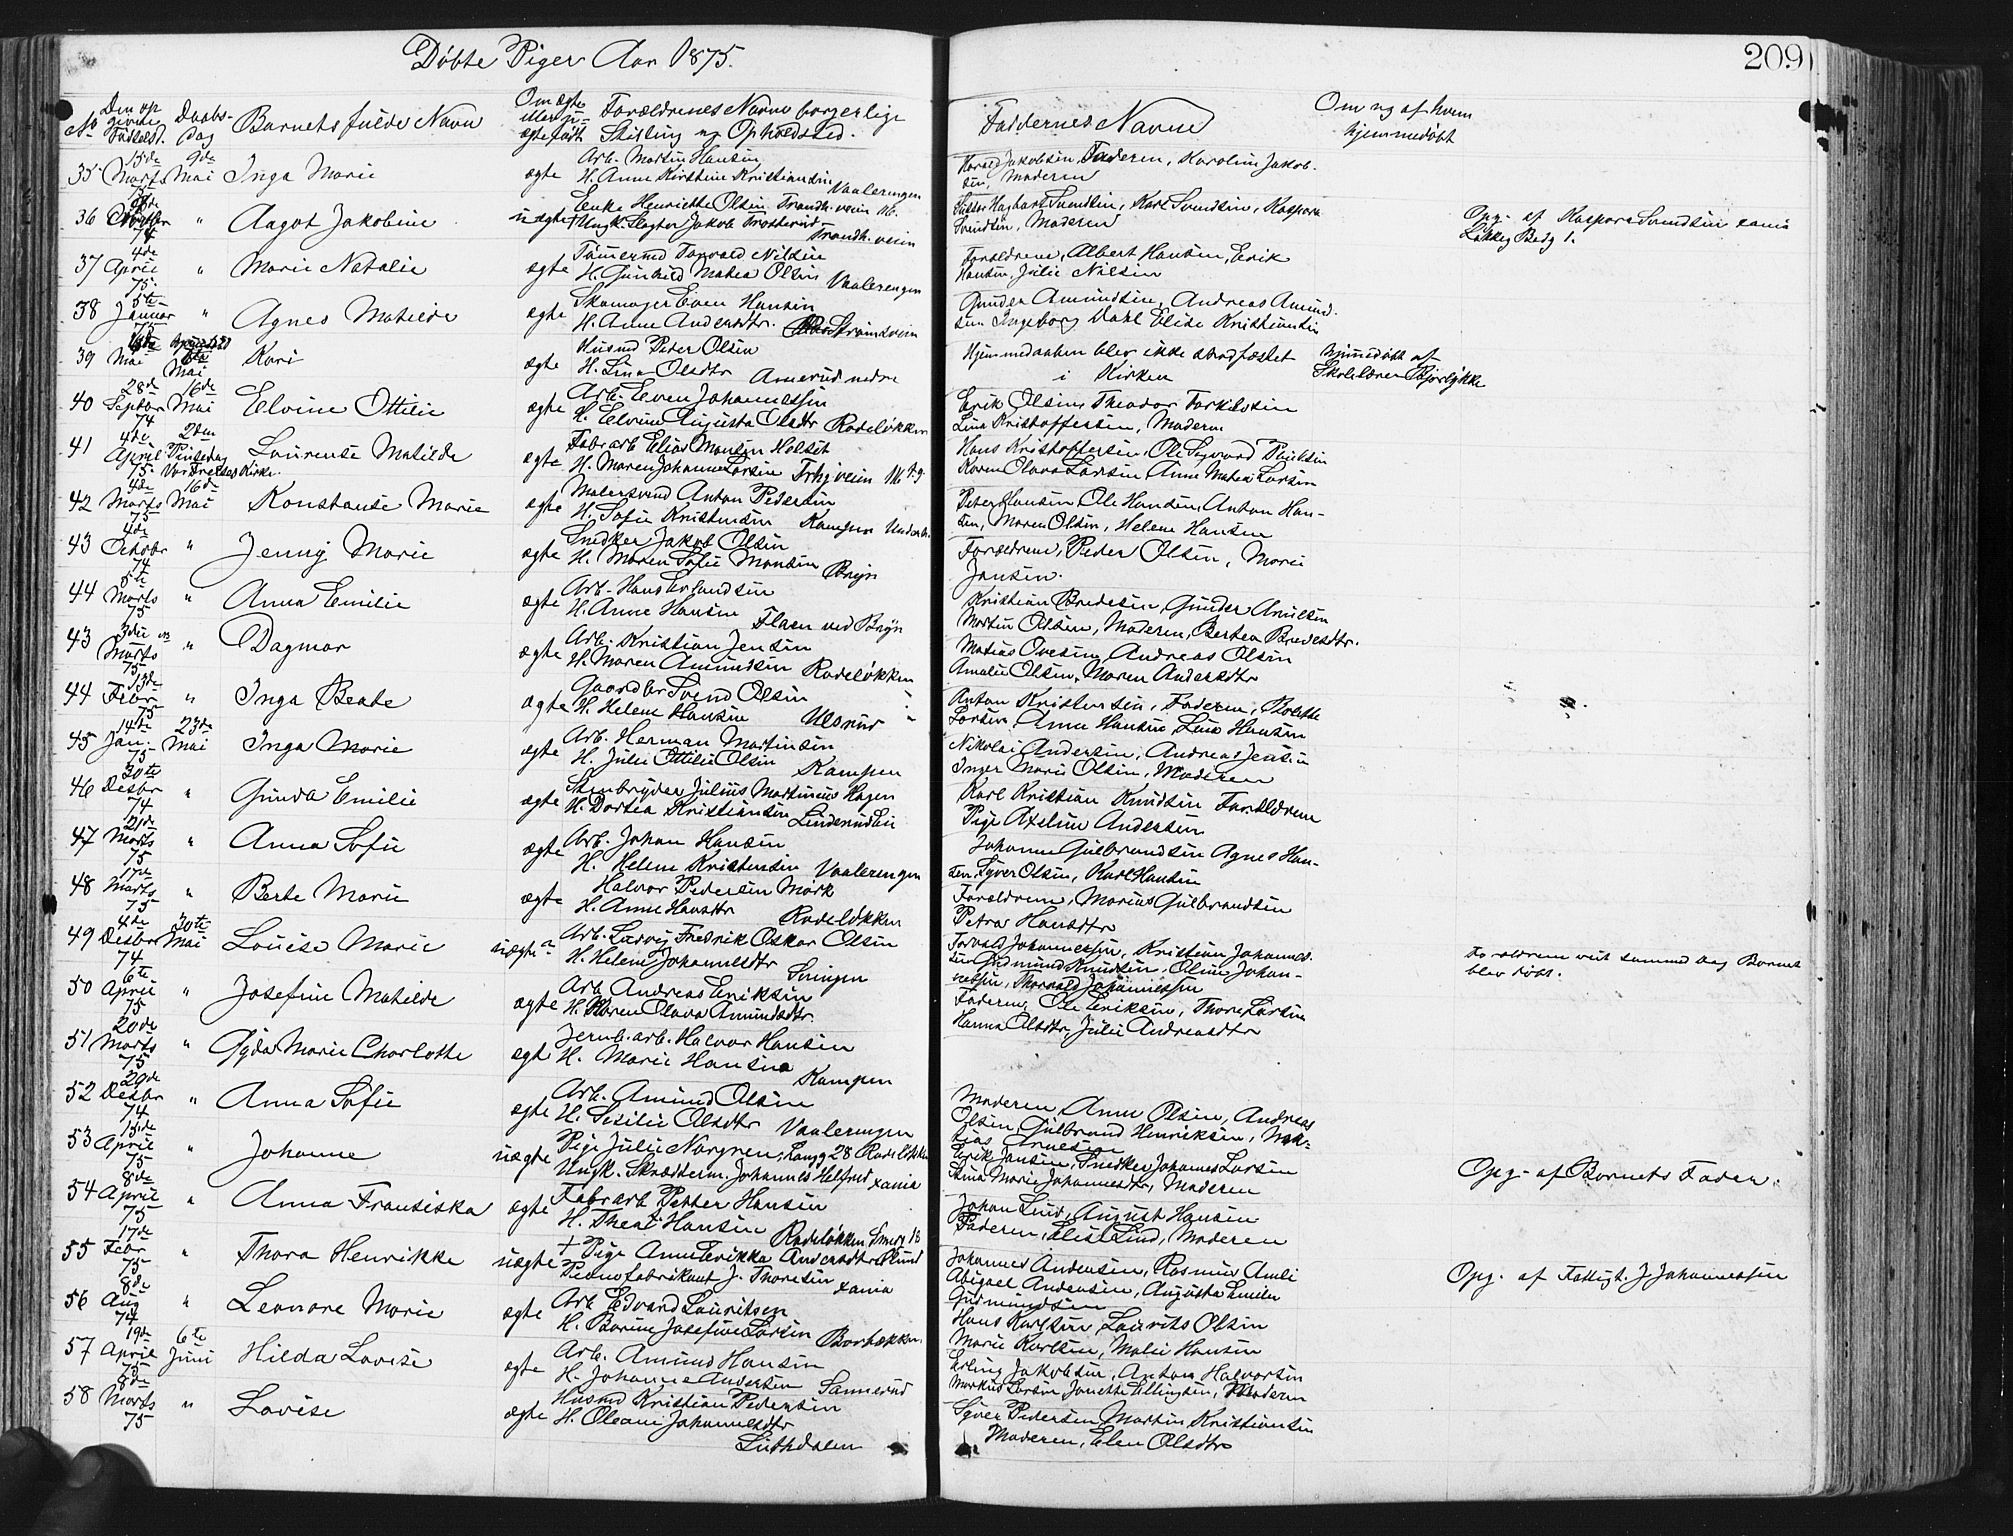 Døbte Piger Aar 1875.
209
No Den opgivne Fødselsd. Daabs-Dag Barnets fulde Navn Om ægte eller uægte født Forældrenes Navne borgerlige Stilling og Opholdssted. Faddernes Navne Om og af hvem hjemmedøbt
35 15de Marts 75 9de Mai Inga Marie ægte Arb. Martin Hansen
H. Anne Kirstine Kristiansen Vaalerengen
Jakobsen, Faderen, Karoline Jakob-
sen, Moderen
36 74 " Aagot Jakobine uægte Enke Henriette Olsen Trondh. veien 16.
Ungk. Slagter Jakob Trosterud Trondh. veien
Haghart Svendsen, Karl Svendsen, Kaspara
Svendsen, Moderen
Opg. af Kaspara Svendsen xania
37 4de April 75. " Marie Natalie ægte Tømermd Torvald Nilsen
H. Gunhild Matea Olsen Vaalerengen
Forældrene, Albert Hansen, Erik
Hansen, Julie Nilsen
38 5te Januar 75 " Agnes Matilde ægte Skomager Even Hansen
H. Anne Andersdtr. Strømsveien
Gunder Amundsen, Andreas Amund-
sen Ingeborg Dahl Elise Kristiansen
39 Mai Mai Kari ægte Husmd Peder Olsen
H. Lina Olsdtr Amerud nedre
Hjemmedaaben blev ikke stadfæstet
i Kirken
hjemmedøbt af
Skolelærer Bjorløkke
40 28de Septbr 74 16de Mai Elvine Ottilie ægte Arb. Even Johannessen
H. Elvine Augusta Olsdtr Rodeløkken
Erik Olsen, Theodor Torkildsen
Lina Kristoffersen, Moderen
41 4de April 75. 2den Pintsedag Vor Frelsers Kirke. Laurense Matilde ægte Fabrarb Elias Monsen Holseth
H. Maren Johanne Larsen
Hans Kristoffersen, Ole Sigvard Paulsen
Karen Olava Larsen Anne Matea Larsen
42 4de Marts 75 16de Mai Konstanse Marie ægte Malersvend Anton Pedersen
H. Sofie Kristensen Kampen
Peter Hansen, Ole Hansen, Anton Han-
sen, Maren Olsen, Helene Hansen
43 4de Octobr 74 " Jenny Marie ægte Snedker Jakob Olsen
H. Maren Sofie Monsen Bryn
Forældrene, Peder Olsen, Marie
Jansen.
44 5te Marts 75 " Anna Emilie ægte Arb. Hans Erlandsen
H. Anne Hansen Flaen ved Bryn
Kristian Bredesen, Gunder Amelsen
Martin Olsen, Moderen, Bertea Bredesdtr.
43 Marts 75 " Dagmar ægte Arb. Kristian Jensen
H. Maren Amundsen Rodeløkken
Matias Ovesen, Andreas Olsen
Amalie Olsen, Maren Andersdtr
44 13de Febr 75 " Inga Beate ægte Gaardbr Svend Olsen
H. Helene Hansen Ulsrud
Anton Kristensen, Faderen, Bolette
Larsen, Anne Hansen, Lina Hansen
45 14de Jan. 75 23de Mai Inga Marie ægte Arb. Herman Martinsen
H. Julie Ottilie Olsen Kampen
Nikolai Andersen, Andreas Jensen
Inger Marie Olsen, Moderen
46 30te Desbr 74 " Gunda Emilie ægte Stenbryder Julius Martinius Hagen
H. Dortea Kristiansen Linderudlia
Karl Kristian Knudsen Forældrene
Pige Axeline Andersen
47 21de Marts 75 " Anna Sofie ægte Arb. Johan Hansen
H. Helene Kristensen Vaalerengen
Johanne Gulbrandsen Agnes Han-
sen, Syver Olsen, Karl Hansen
48 17de Marts 75 " Berte Marie ægte Halvor Pedersen Mørk
H. Anne Hansdtr Rodeløkken
Forældrene, Marius Gulbrandsen
Petra Hansdtr
49 4de Desbr 74 30te Mai Louise Marie uægte Arb. Ludvig Fredrik Oskar Olsen
H. Helene Johannesdtr Svingen
Torvald Johannessen, Kristian Johannes-
sen Gudmund Knudsen, Oline Johan-
nessen, Thorvald Johannessen
Forældrene viet samme Dag Barnet
blev døbt.
50 6te April 75 " Josefine Matilde ægte Arb. Andreas Eriksen
H. Karen Olava Amundsdtr.
Faderen, Ole Eriksen, Thora Larsen
Hanna Olsdtr, Julie Andreasdtr
51 20de Marts 75 " Gyda Marie Charlotte ægt Jernb. arb. Halvor Hansen
H. Marie Hansen Kampen
52 29de Desbr 74 " Anna Sofie ægte Arb. Amund Olsen
H. Sesilie Olsdtr Vaalerengen
Moderen, Anne Olsen, Andreas
Olsen, Gulbrand Henriksen, Mat-
tias Arnesen
53 15de April 75 " Johanne uægte Pige Julie Norgren, Langg 28 Rodeløkken
Ungk. Skræderm. Johannes Helfred xania
Erik Jansen, Snedker Johannes Larsen
Lina Marie Johannesdtr, Moderen
Opg. af Barnets Fader.
54 8de April 75 " Anna Fransiska ægte Fabrarb Petter Hansen
H. Thea Hansen Rodeløkken
Johan Lind, August Hansen
Faderen, Elise Lind, Moderen
55 17de Febr 75 " Thora Henrikke uægte + Pige Anne Erikka Andersdtr
Pianofabrikant J. Thoresen xania
Johannes Andersen, Rasmus Amli
Abigael Andersen, Augusta Emilie
Gudmundsen
Opg. af Fattigf. J Johannessen
56 8de Aug 74 " Leonore Marie ægte Arb Edvard Lauritsen
H. Barine Josefine Larsen
Hans Karlsen, Laurits Olsen
Marie Karlsen, Malie Hansen
57 19de April 75 6te Juni Hilda Lovise ægte Arb. Amund Hansen
H. Johanne Andersen Sannerud
Erling Jakobsen, Anton Halvorsen
Markus Larsen Janette Ellingsen, Moderen
58 8de Marts 75 " Lovise ægte Husmd Kristian Pedersen
H. Oleane Johannesdtr
Lutdalen
Syver Pedersen Martin Kristiansen
Moderen, Elen Olsdtr